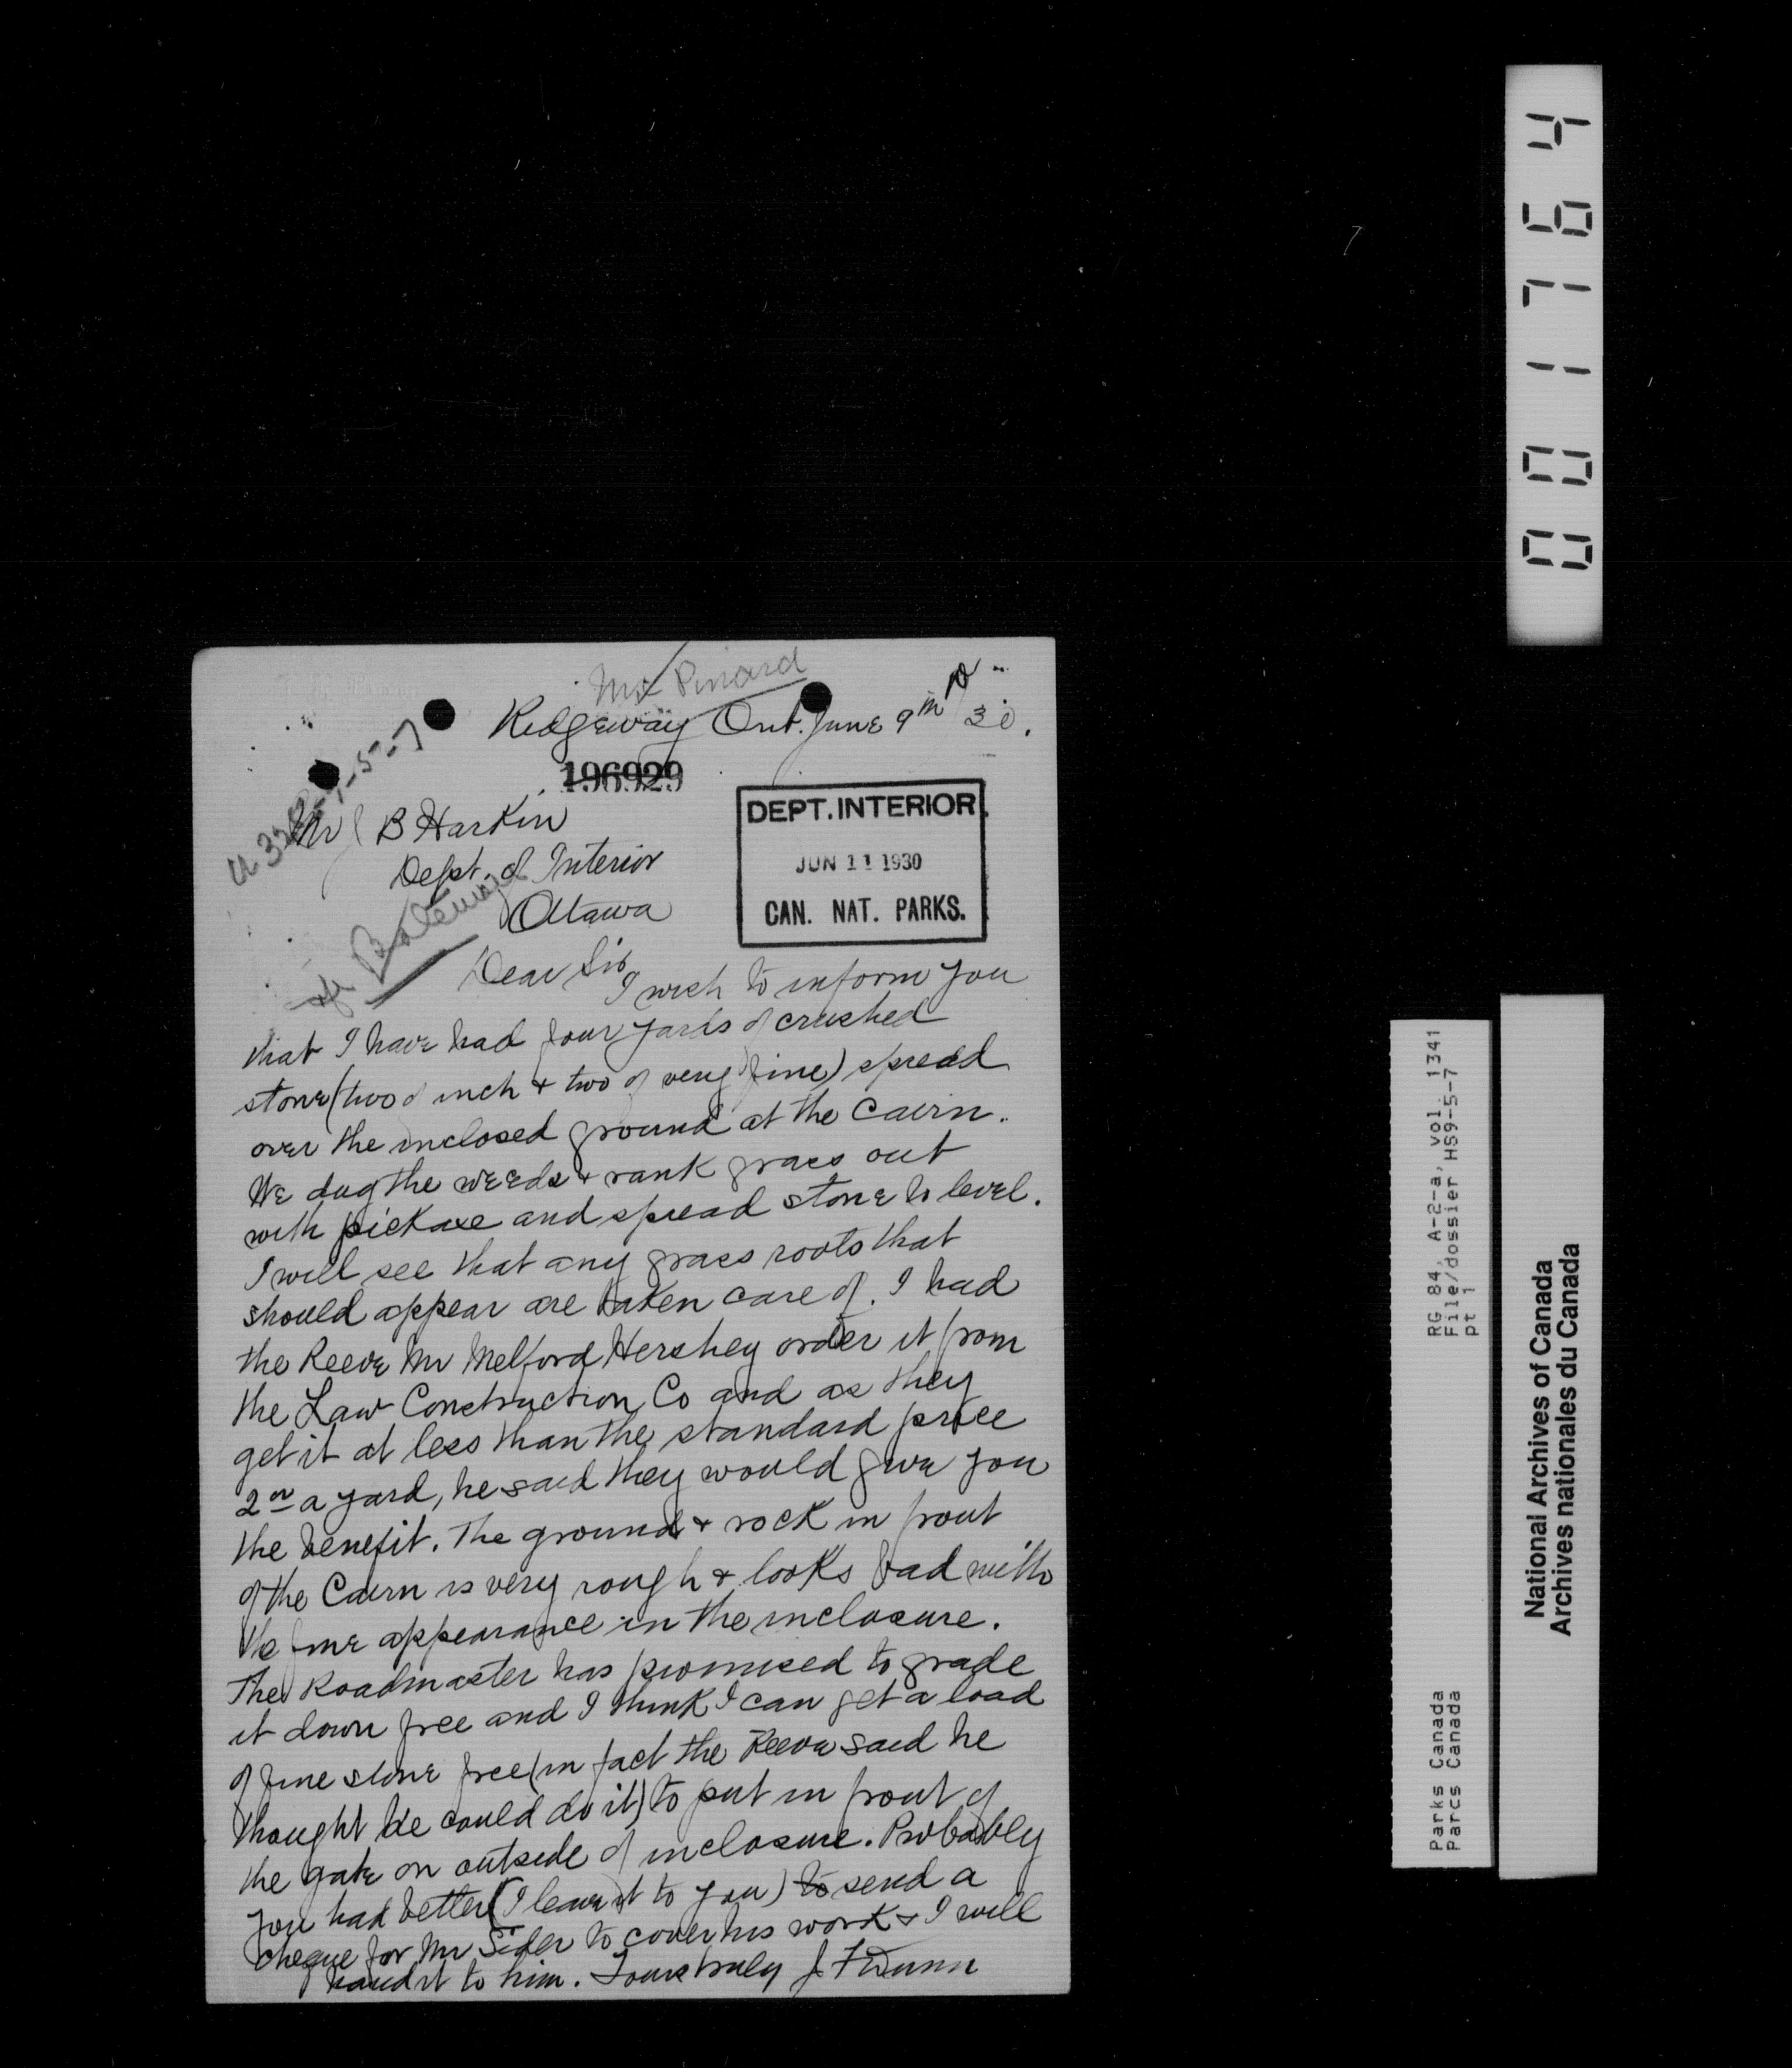 Mr Pinard
Ridgeway Ont. June 9th/30.
196929
Mr J B Harkin
Dept. of Interior
Ottawa
DEPT. INTERIOR
JUN 11 1930
CAN. NAT. PARKS.
Mr Bateman
Dear Sir,
I wish to inform you
that I have had four yards of crushed
stone (two of inch & two of very fine) spread
over the inclosed ground at the Cairn.
We dug the weeds & rank grass out
with pickaxe and spread stone to level.
I will see that any grass roots that
should appear are taken care of. I had
the Reeve Mr Melford Hershey order it from
the Law Construction Co and as they
get it at less than the standard price
2 00 a yard, he said they would give you
the benefit. The ground & rock in front
of the Cairn is very rough & looks bad with
the fine appearance in the inclosure.
The Roadmaster has promised to grade
it down free and I think I can get a load
of fine stone free (in fact the Reeve said he
thought he could do it) to put in front of
the gate on outside of inclosure. Probably
you had better (I leave it to you) to send a
cheque for Mr Sider to cover his work & I will
hand it to him. Yours truly J F Dunn
001764
RG 84, A-2-a, vol. 1341
File/dossier HS9-5-7
pt 1
Parks Canada
Parcs Canada
National Archives of Canada
Archives nationales du Canada